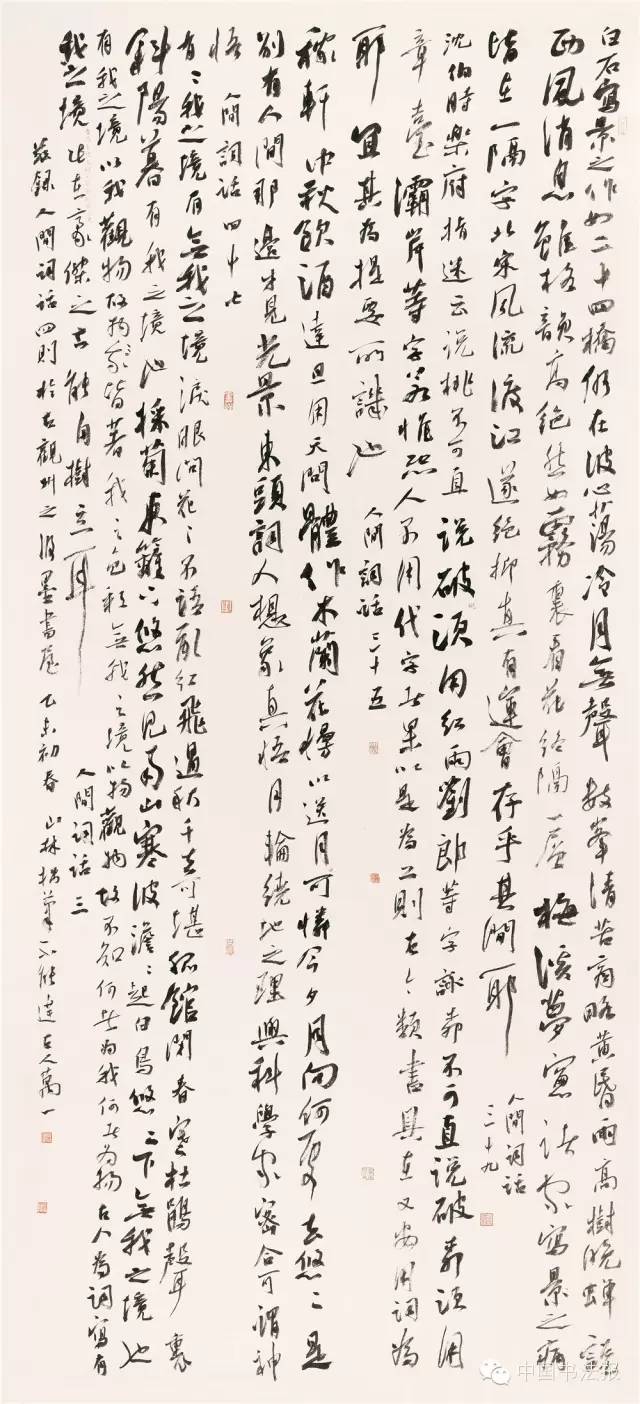 白石寫景之作如二十四橋仍在波心蕩冷月無聲數峯清苦商略黃昏雨高樹晚蟬說
西風消息雖格韻高絕然如霧裏看花終隔一層梅溪夢窗諸家寫景之病
皆在一隔字北宋風流渡江遂絕抑真有運會存乎其間耶
人間詞話
三十九
沈伯時樂府指迷云說桃不可直說破須用紅雨劉郎等字詠柳不可直說破柳須用
章臺灞岸等字若惟恐人不用代字者果以是為工則古今類書具在又安用詞為
耶宜其為提要所譏也 人間詞話三十五
稼軒中秋飲酒達旦用天問體作木蘭花慢以送月可憐今夕月向何處去悠悠是
別有人間那邊才見光景東頭詞人想象直悟月輪繞地之理與科學家密合可謂神
悟 人間詞話四十七
有〻我之境有無我之境淚眼問花〻不語亂紅飛過秋千去可堪孤館閉春寒杜鵑聲裏
斜陽暮有我之境也採菊東籬下悠然見南山寒波澹〻起白鳥悠〻下無我之境也
有我之境以我觀物故物皆著我之色彩無我之境以物觀物故不知何者為我何者為物古人為詞寫有
我之境此在豪傑之士能自樹立耳
人間詞話三
敬錄人間詞話四則於古觀州之墨書屋乙未初春山林筆不能達古人萬一
中国书法报